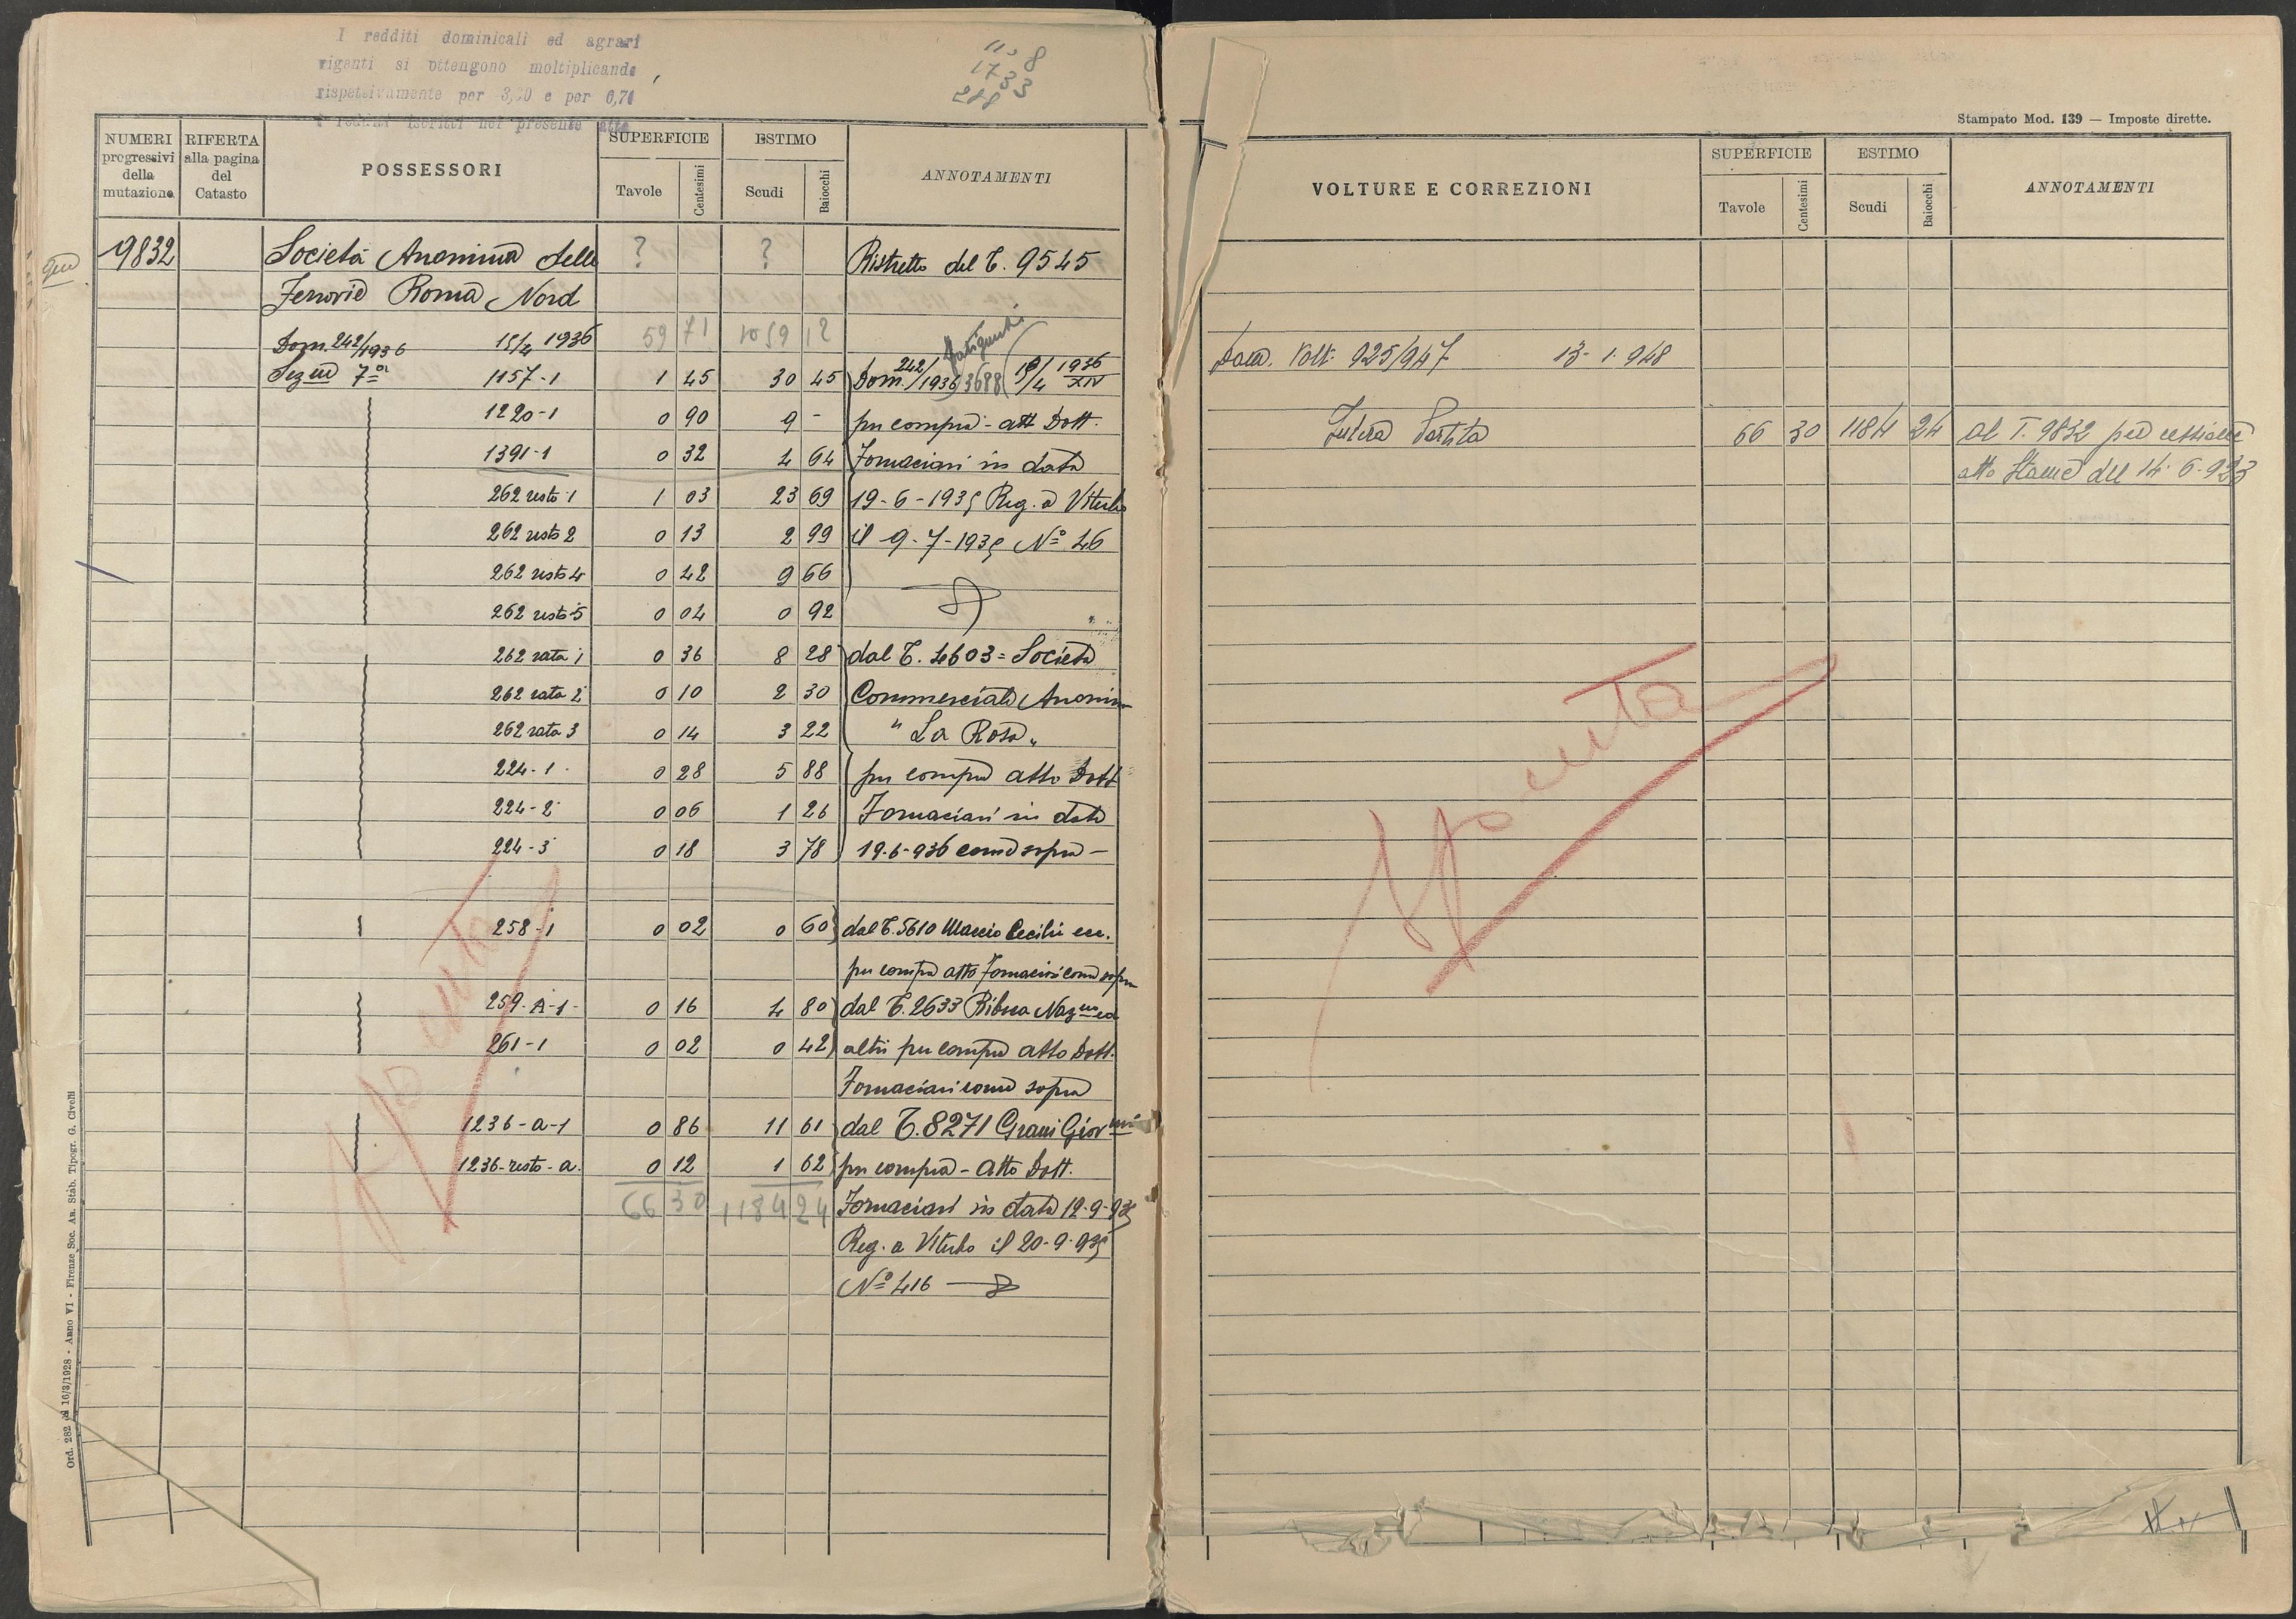 I redditi dominicali ed agrari
vigenti si ottengono moltiplicando
rispettivamente per 3,20 e per 6,70
i redditi iscritti nel presente atto
11 8
17 33
288
NUMERI progressivi della mutazione
RIFERTA alla pagina del Catasto
POSSESSORI
SUPERFICIE
Tavole Centesimi
ESTIMO
Scudi Baiocchi
ANNOTAMENTI
9832 Società Anonima delle ? ? Ristretto del T. 9545
Ferrovie Roma Nord
Dom. 242/1936 15/4 1936 59 71 1059 12
Sez ne 7a 1157-1 1 45 30 45 Dom. 242/1936 3688 15/4 1936 XIV
1220-1 0 90 9 - per compra - att Dott.
1391-1 0 32 4 64 Fornaciari in data
262 resto 1 1 03 23 69 19-6-1935 Reg. a Viterbo
262 resto 2 0 13 2 99 il 9-7-1935 No 46
262 resto 4 0 42 9 66
262 resto 5 0 04 0 92
262 rata 1 0 36 8 28 dal T. 4603 = Società
262 rata 2 0 10 2 30 Commerciale Anonim
262 rata 3 0 14 3 22 " La Rosa "
224-1 0 28 5 88 per compra atto Dott
224-2 0 06 1 26 Fornaciari in data
224-3 0 18 3 78 19-6-936 come sopra -
258-1 0 02 0 60 dal T. 5610 Maccio Cecilia ecc.
per compra atto Fornaciari come sopra
259-A-1- 0 16 4 80 dal T. 2633 Nazreo
261-1 0 02 0 42 altri per compra atto Dott.
Fornaciari come sopra
1236-a-1 0 86 11 61 dal T. 8271 Grani Giovnni
1236-resto-a. 0 12 1 62 per compra - Atto Dott.
66 30 1184 24 Fornaciari in data 12-9-935
Reg. a Viterbo il 20-9-935
No 416
Spenta
Ord. 282 del 16/3/1928 - Anno VI - Firenze Soc. An. Stab. Tipogr. G. Civelli
Stampato Mod. 139 — Imposte dirette.
VOLTURE E CORREZIONI
SUPERFICIE
Tavole Centesimi
ESTIMO
Scudi Baiocchi
ANNOTAMENTI
Dom. Volt. 925/947 13-1-948
Intera Partita 66 30 1184 24 al T. 9832 per cessione
atto Stame del 14-6-923
Spenta